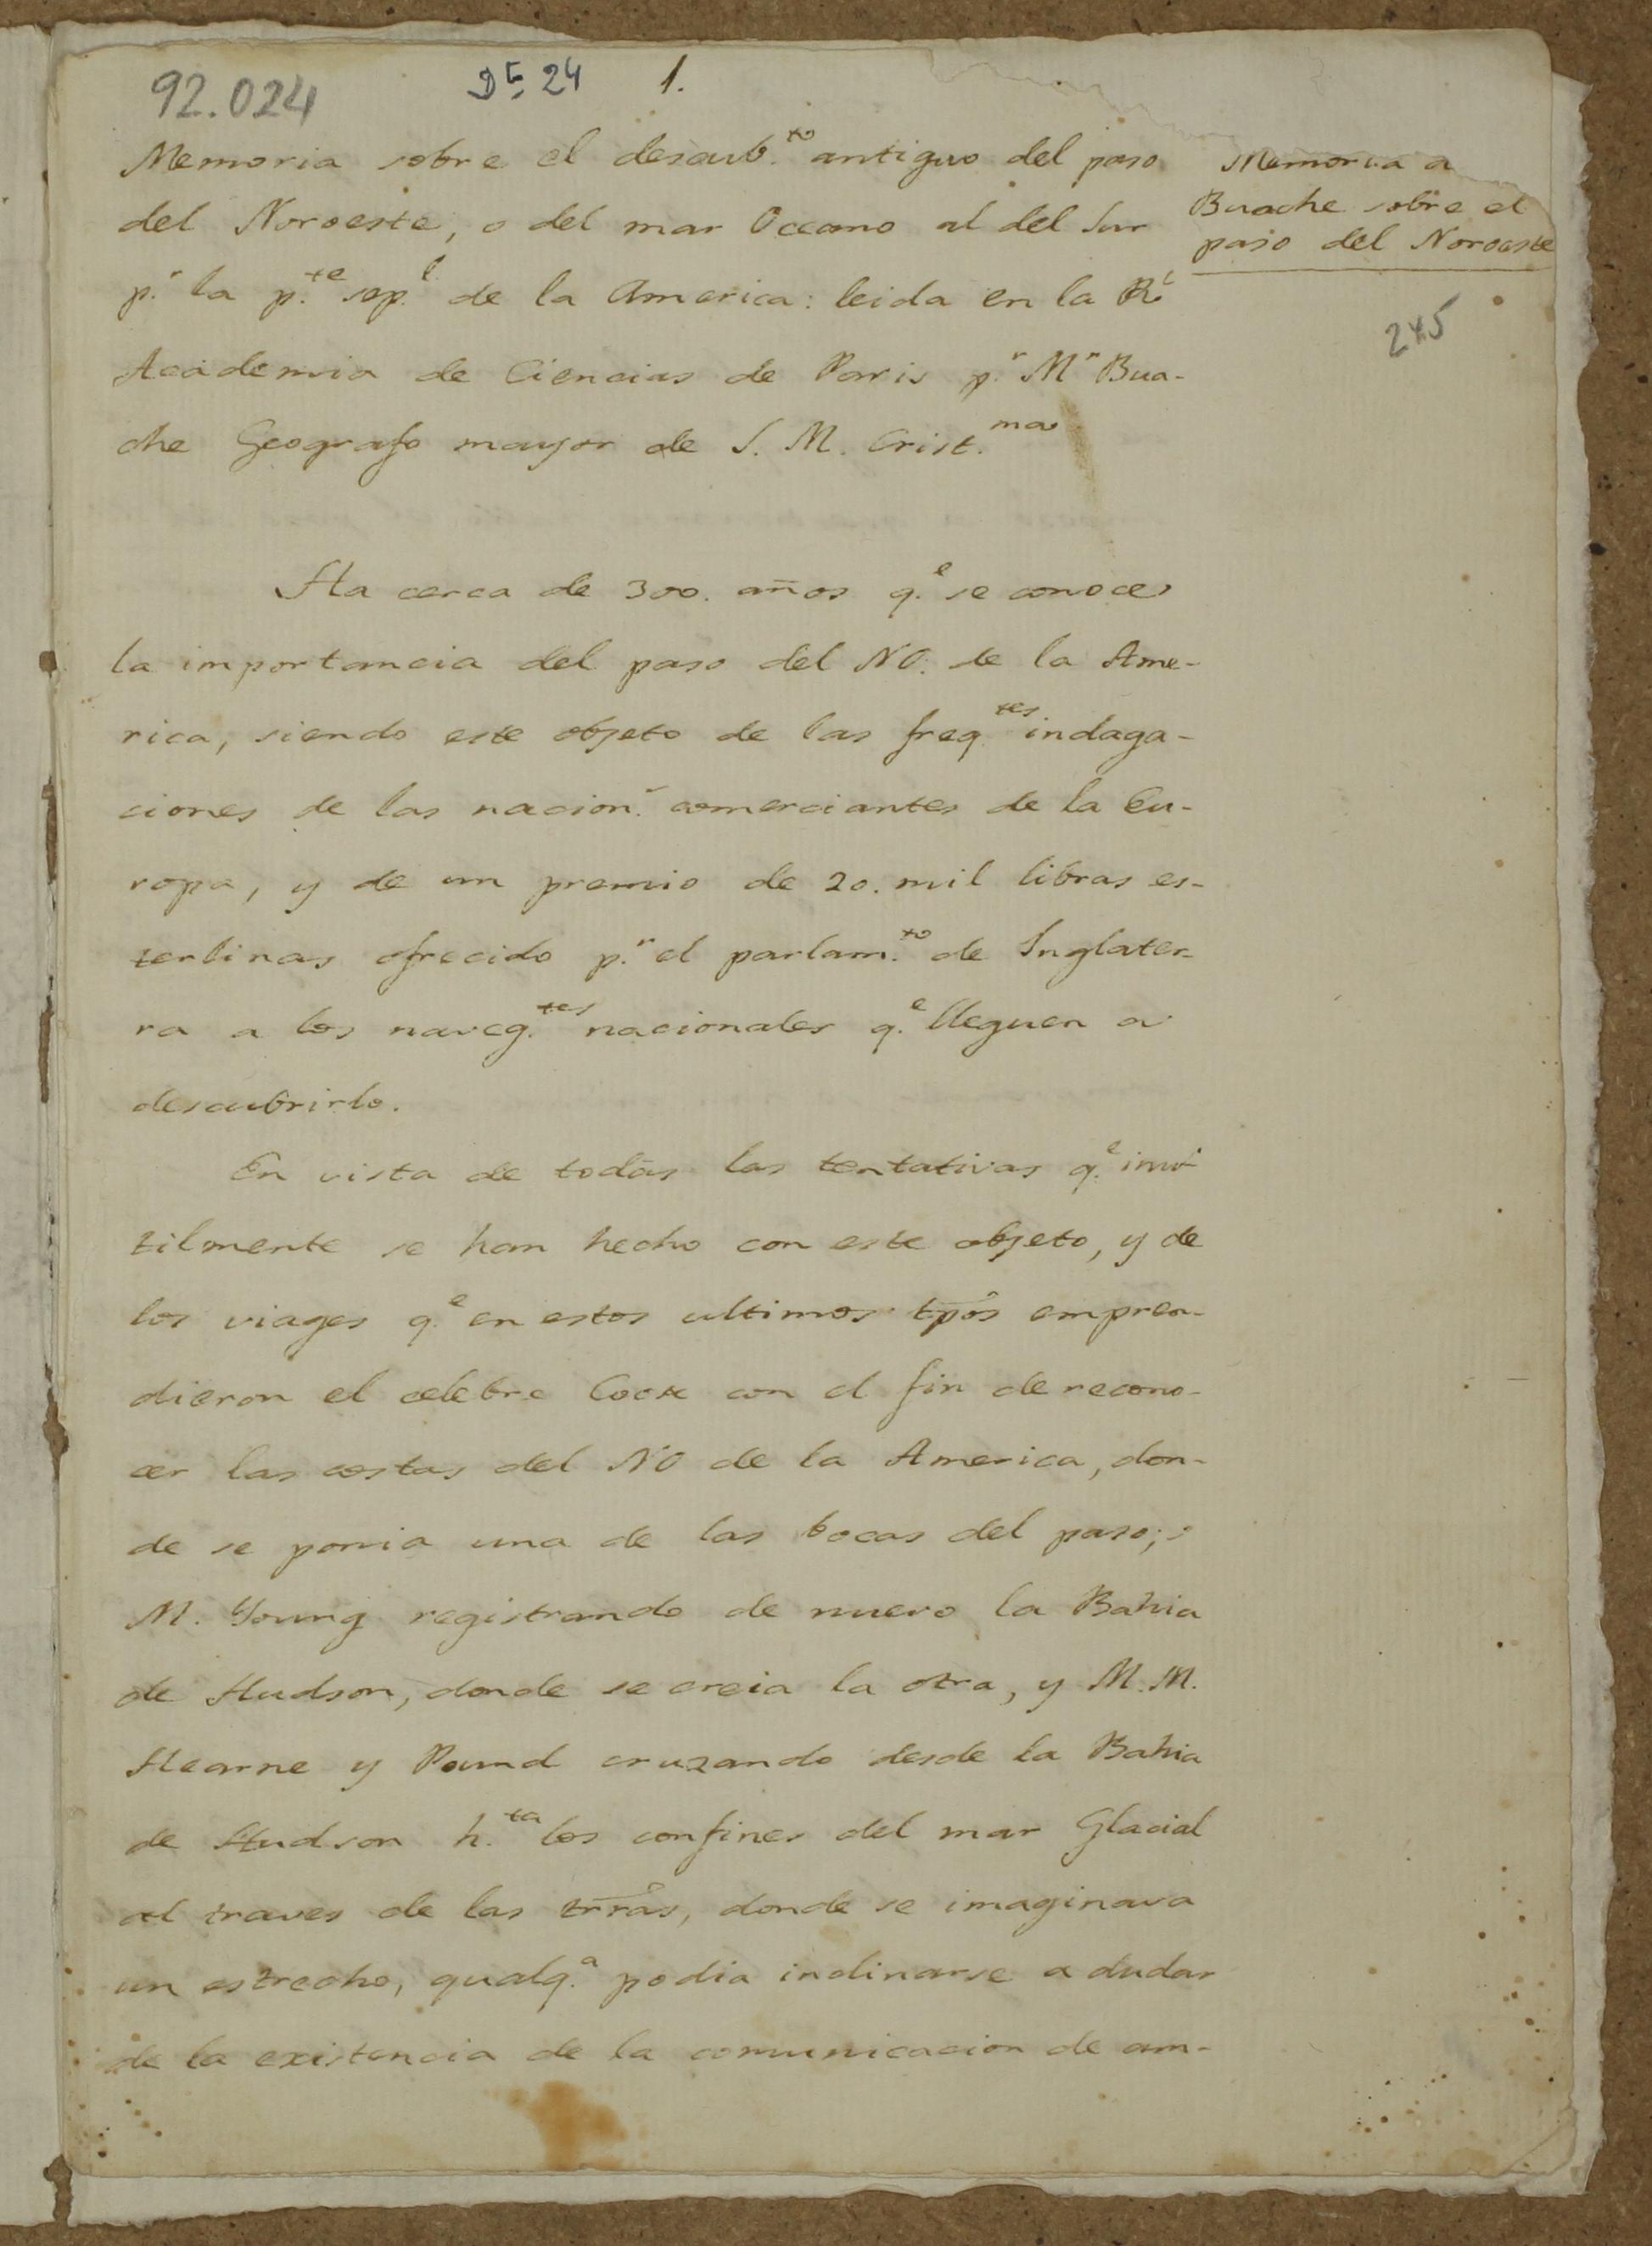 92.024
Dt. 24
1.
Memoria sobre el descub.to antiguo del paso
del Noroeste, o del mar Occeano al del Sur
p.r la p.te sep.l de la America: leida en la Rl
Academia de Ciencias de Paris p.r Mr Bua-
che Geografo mayor de S. M. Crist.ma
Memoria a
Buache sobre el
paso del Noroeste
245
Ha cerca de 300. años q.e se conoce
la importancia del paso del NO. de la Ame-
rica, siendo este objeto de las freq.tes indaga-
ciones de las nacion.s comerciantes de la Eu-
ropa, y de un premio de 20. mil libras es-
terlinas ofrecido p.r el parlam.to de Inglater-
ra a los naveg.tes nacionales q.e lleguen a
descubrirlo.
En vista de todas las tentativas q.e inu-
tilmente se han hecho con este objeto, y de
los viages q.e en estos ultimos tpos empren-
dieron el celebre Cook con el fin de recono-
cer las costas del NO de la America, don-
de se ponia una de las bocas del paso;
M. Young registrando de nuevo la Bahia
de Hudson, donde se creia la otra, y M.M.
Hearne y Pound cruzando desde la Bahia
de Hudson h.ta los confines del mar Glacial
al traves de las trras, donde se imaginava
un estrecho, qualq.a podia inclinarse a dudar
de la existencia de la comunicacion de am-